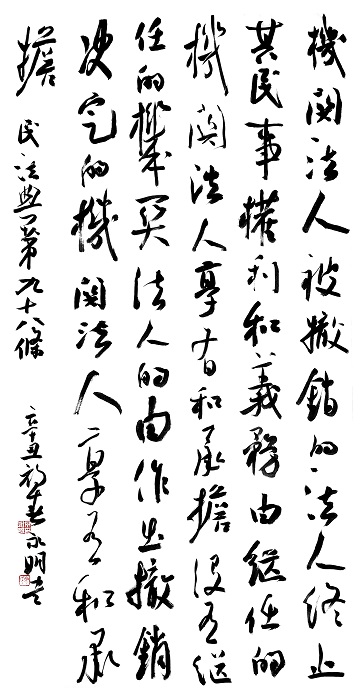 機関法人被撤銷的法人終止
其民事權利和義務由継任的
機関法人享有和承擔沒有継
任的機関法人的由作出撤銷
决定的機関法人享有和承
擔
民法典第九十八條
辛丑初春永明書